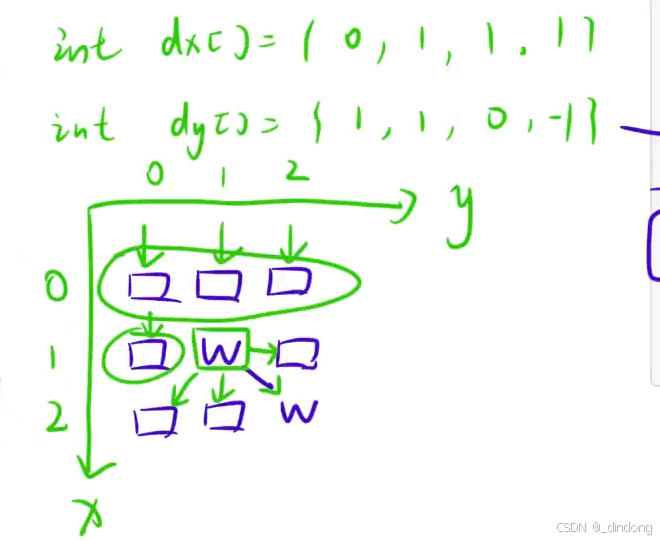 int dx[] = { 0, 1, 1, 1}
int dy[] = { 1, 1, 0, -1}
0 1 2
y
0
1 W
2 W
x
CSDN @_dindong